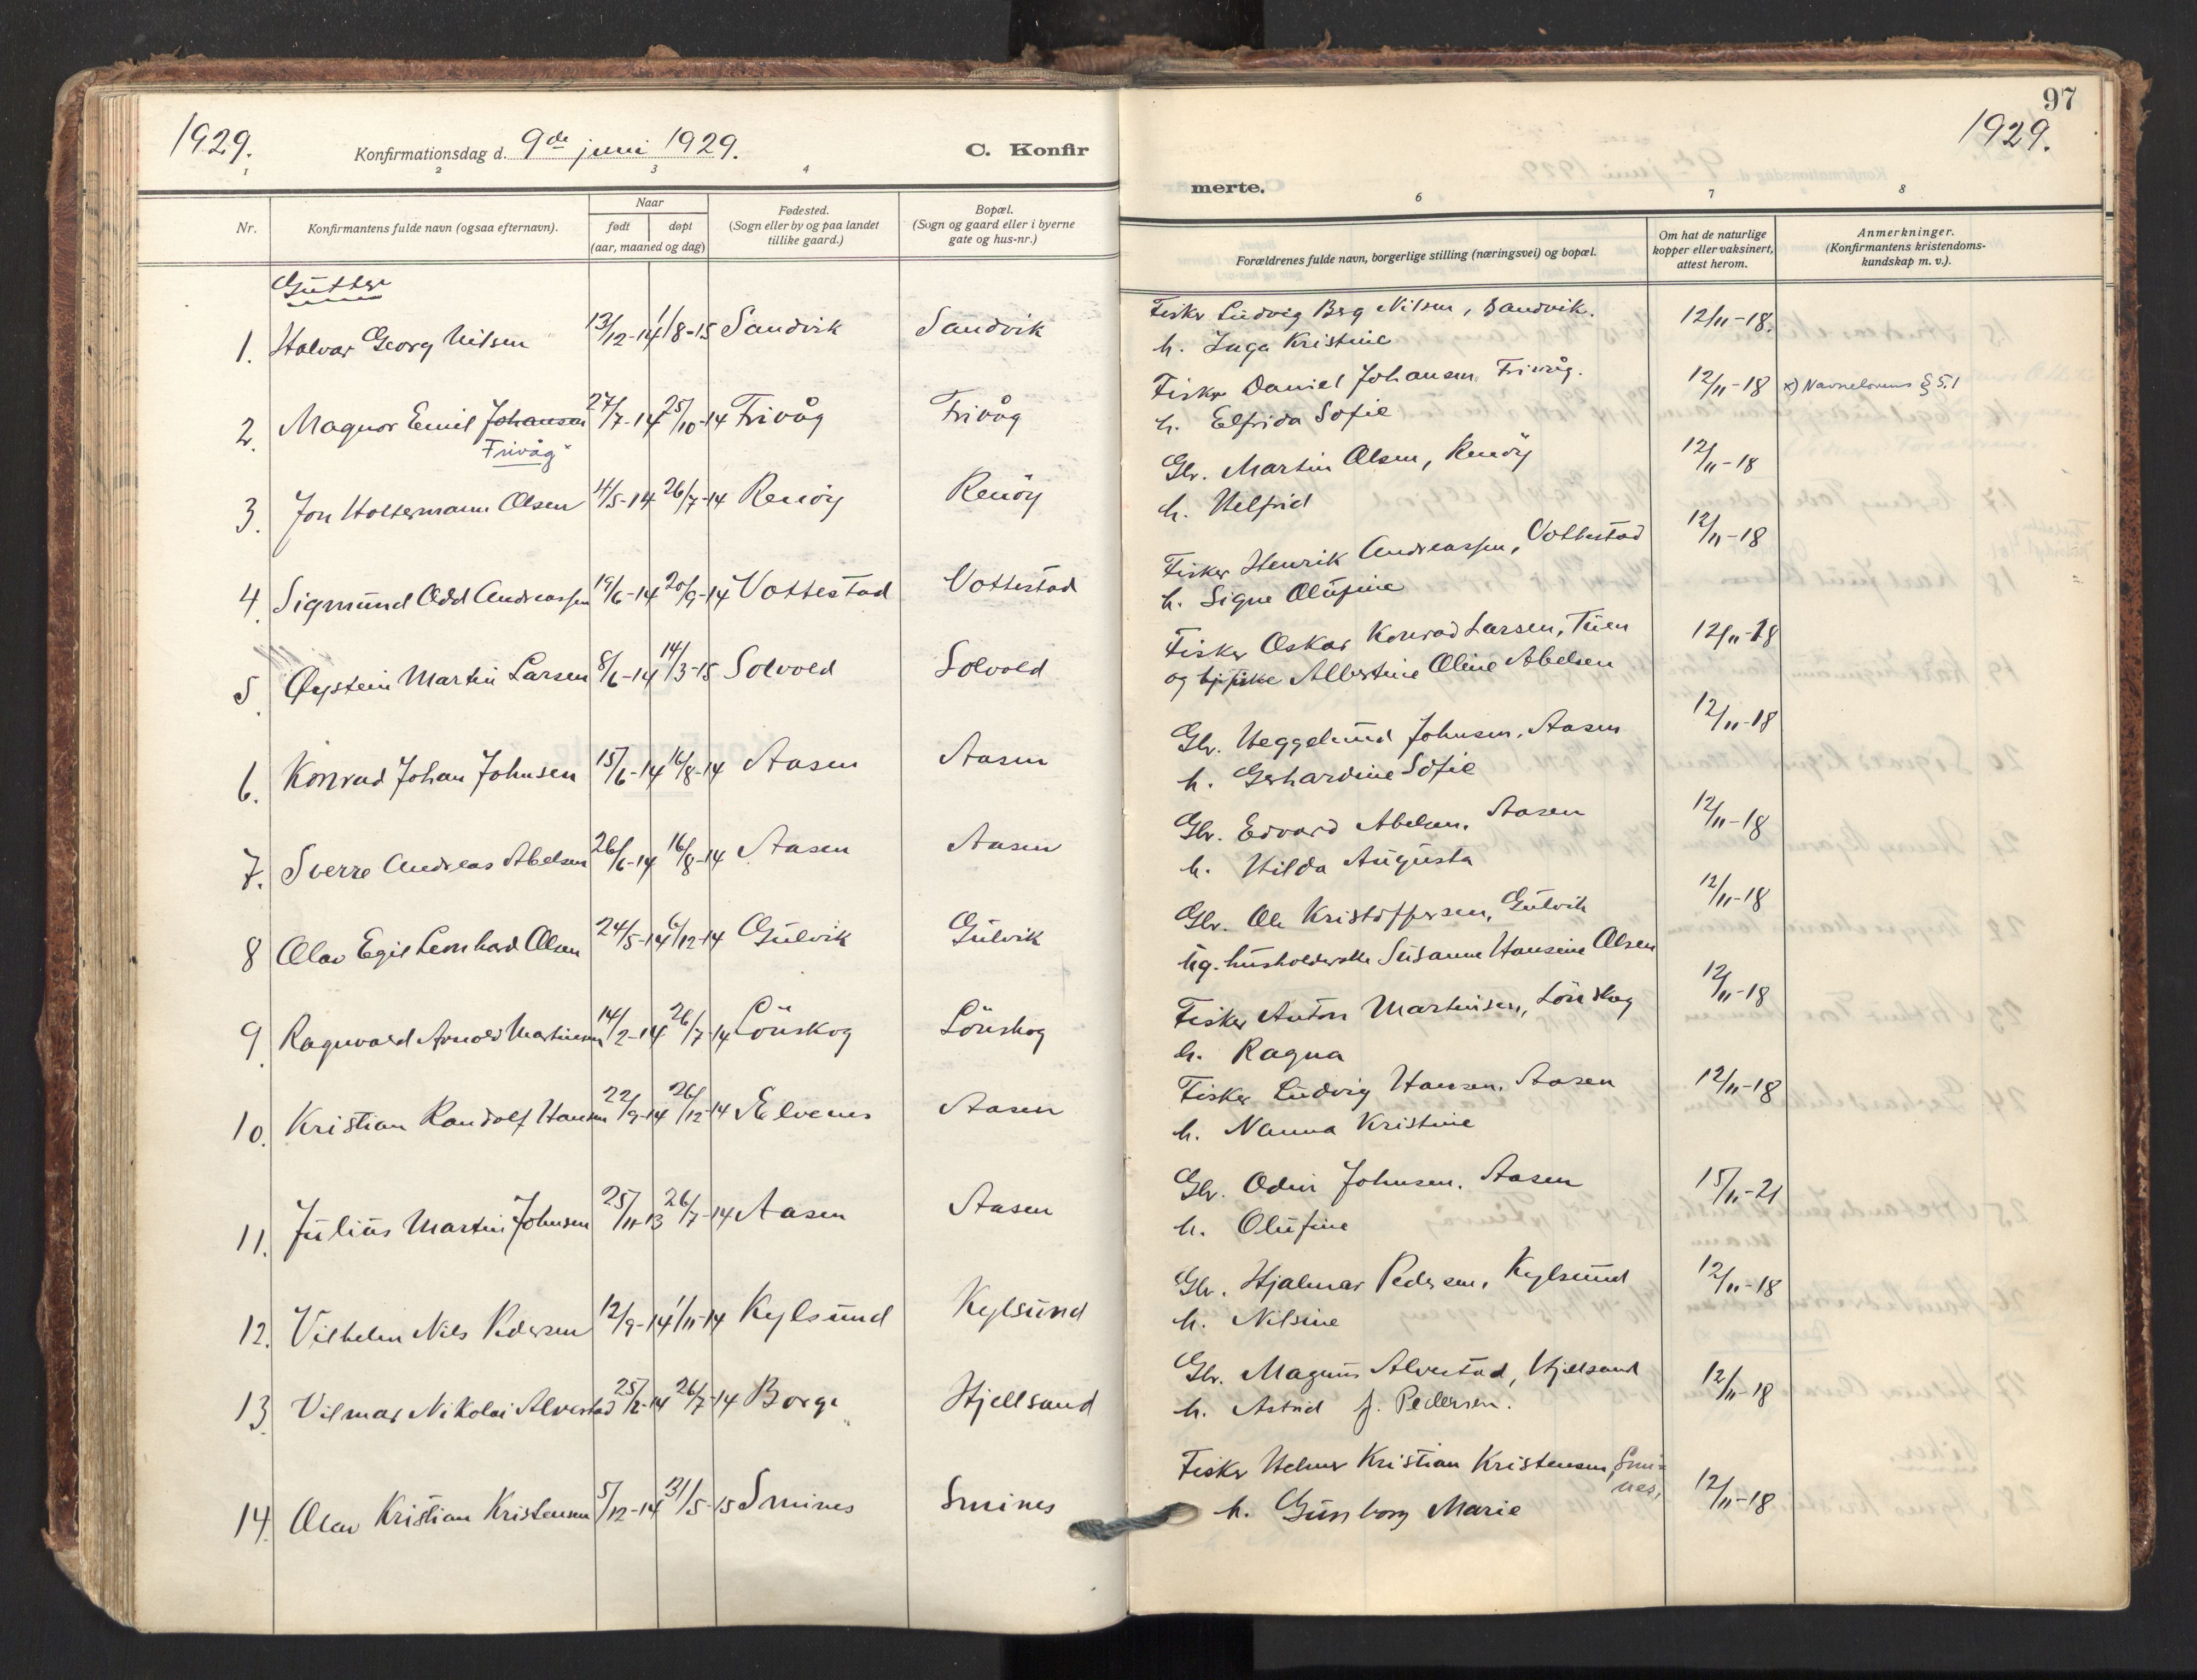 1929.
Konfirmationsdag d. 9de juni 1929.
C. Konfir
1 2 3 4
Nr.
Konfirmantens fulde navn (ogsaa efternavn).
Naar
født døpt
(aar, maaned og dag)
Fødested.
(Sogn eller by og paa landet
tillike gaard.)
Bopæl.
(Sogn og gaard eller i byerne
gate og hus-nr.)
Gutter
1. Halvar Georg Nilsen 13/12-14 1/8-15 Sandvik Sandvik
2. Magnor Emil Johansen 27/7-14 25/10-14 Frivåg Frivåg
Frivåg x
3. Jon Holtermann Olsen 14/5-14 26/7-14 Renöy Renöy
4. Sigmund Odd Andreassen 19/6-14 20/9-14 Vottestad Vottestad
5. Øystein Martin Larsen 8/6-14 14/3-15 Solvold Solvold
6. Konrad Johan Johnsen 15/6-14 16/8-14 Aasen Aasen
7. Sverre Andreas Abelsen 26/6-14 16/8-14 Aasen Aasen
8 Olav Egil Leonhard Olsen 24/5-14 6/12-14 Gulvik Gulvik
9. Ragnvald Arnold Martinsen 14/2-14 26/7-14 Lönskog Lönskog
10. Kristian Randolf Hansen 22/9-14 26/12-14 Elvenes Aasen
11. Julius Martin Johnsen 25/11-13 26/7-14 Aasen Aasen
12. Vilhelm Nils Pedersen 12/9-14 1/11-14 Kylsund Kylsund
13. Vilmar Nikolai Alvestad 25/2-14 26/7-14 Borge Hjellsand
14. Olav Kristian Kristensen 5/12-14 31/5-15 Smines Smines
97
1929.
merte.
6 7 8
Forældrenes fulde navn, borgerlige stilling (næringsvei) og bopæl.
Om hat de naturlige
kopper eller vaksinert,
attest herom.
Anmerkninger.
(Konfirmantens kristendoms-
kundskap m. v.).
Fisker Ludvig Berg Nilsen, Sandvik. 12/11-18.
h. Inga Kristine
Fisker Daniel Johansen Frivåg. 12/11-18 x) Navnelovens § 5.1
h. Elfrida Sofie
Gbr. Martin Olsen, Renöy 12/11-18
h. Helfrid
Fisker Henrik Andreassen, Vottestad 12/11-18
h. Signe Olufine
Fisker Oskar Konrad Larsen, Tuen 12/11-18
og pike Albertine Oline Abelsen
Gbr. Heggelund Johnsen. Aasen 12/11-18
h. Gerhardine Sofie
Gbr. Edvard Abelsen. Aasen 12/11-18
h. Hilda Augusta
Gbr. Ole Kristoffersen, Gulvik 12/11-18
ug. husholderske Susanne Hansine Olsen
Fisker Anton Martinsen, Lönskog 12/11-18
h. Ragna
Fisker Ludvig Hansen. Aasen 12/11-18
h. Nanna Kristine
Gbr. Odin Johnsen. Aasen 15/11-21
h. Olufine
Gbr. Hjalmar Pedersen, Kylsund 12/11-18
h. Nilsine
Gbr. Magnus Alvestad, Hjellsand 12/11-18
h. Astrid f. Pedersen.
Fisker Helmer Kristian Kristensen, Smi=
nes, 12/11-18
h. Gunborg Marie